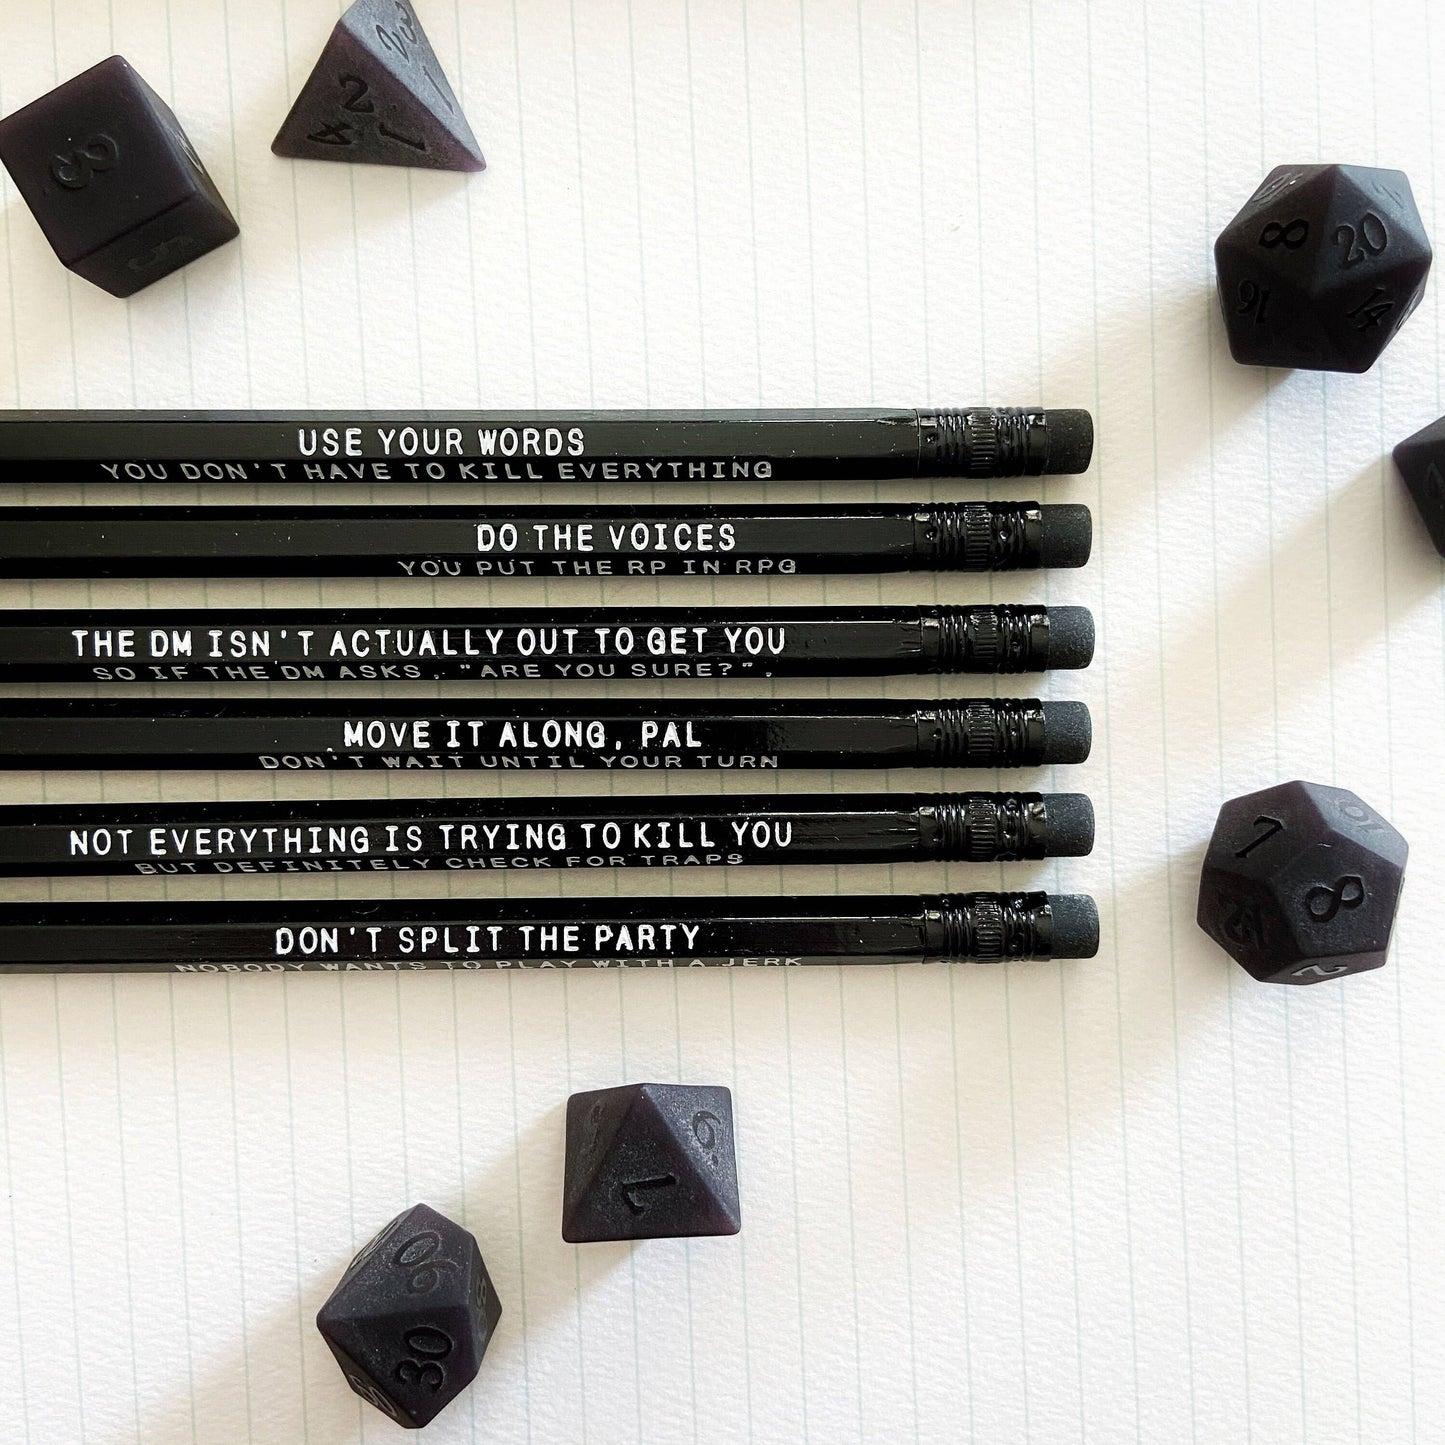 USE YOUR WORDS
YOU DON'T HAVE TO KILL EVERYTHING
DO THE VOICES
YOU PUT THE RP IN RPG
THE DM ISN'T ACTUALLY OUT TO GET YOU
SO IF THE DM ASKS, "ARE YOU SURE?",
MOVE IT ALONG, PAL
DON'T WAIT UNTIL YOUR TURN
NOT EVERYTHING IS TRYING TO KILL YOU
BUT DEFINITELY CHECK FOR TRAPS
DON'T SPLIT THE PARTY
NOBODY WANTS TO PLAY WITH A JERK
2
4
1
8
20
16
14
1
8
12
2
9.
1
90
30
50